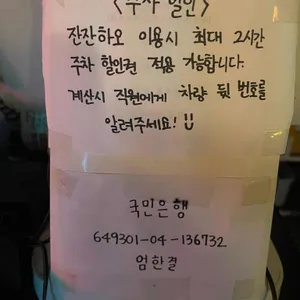 <주차 할인>
잔잔하오 이용시 최대 2시간
주차 할인권 적용 가능합니다.
계산시 직원에게 차량 뒷 번호를
알려주세요!
국민은행
649301-04-136732
엄한결